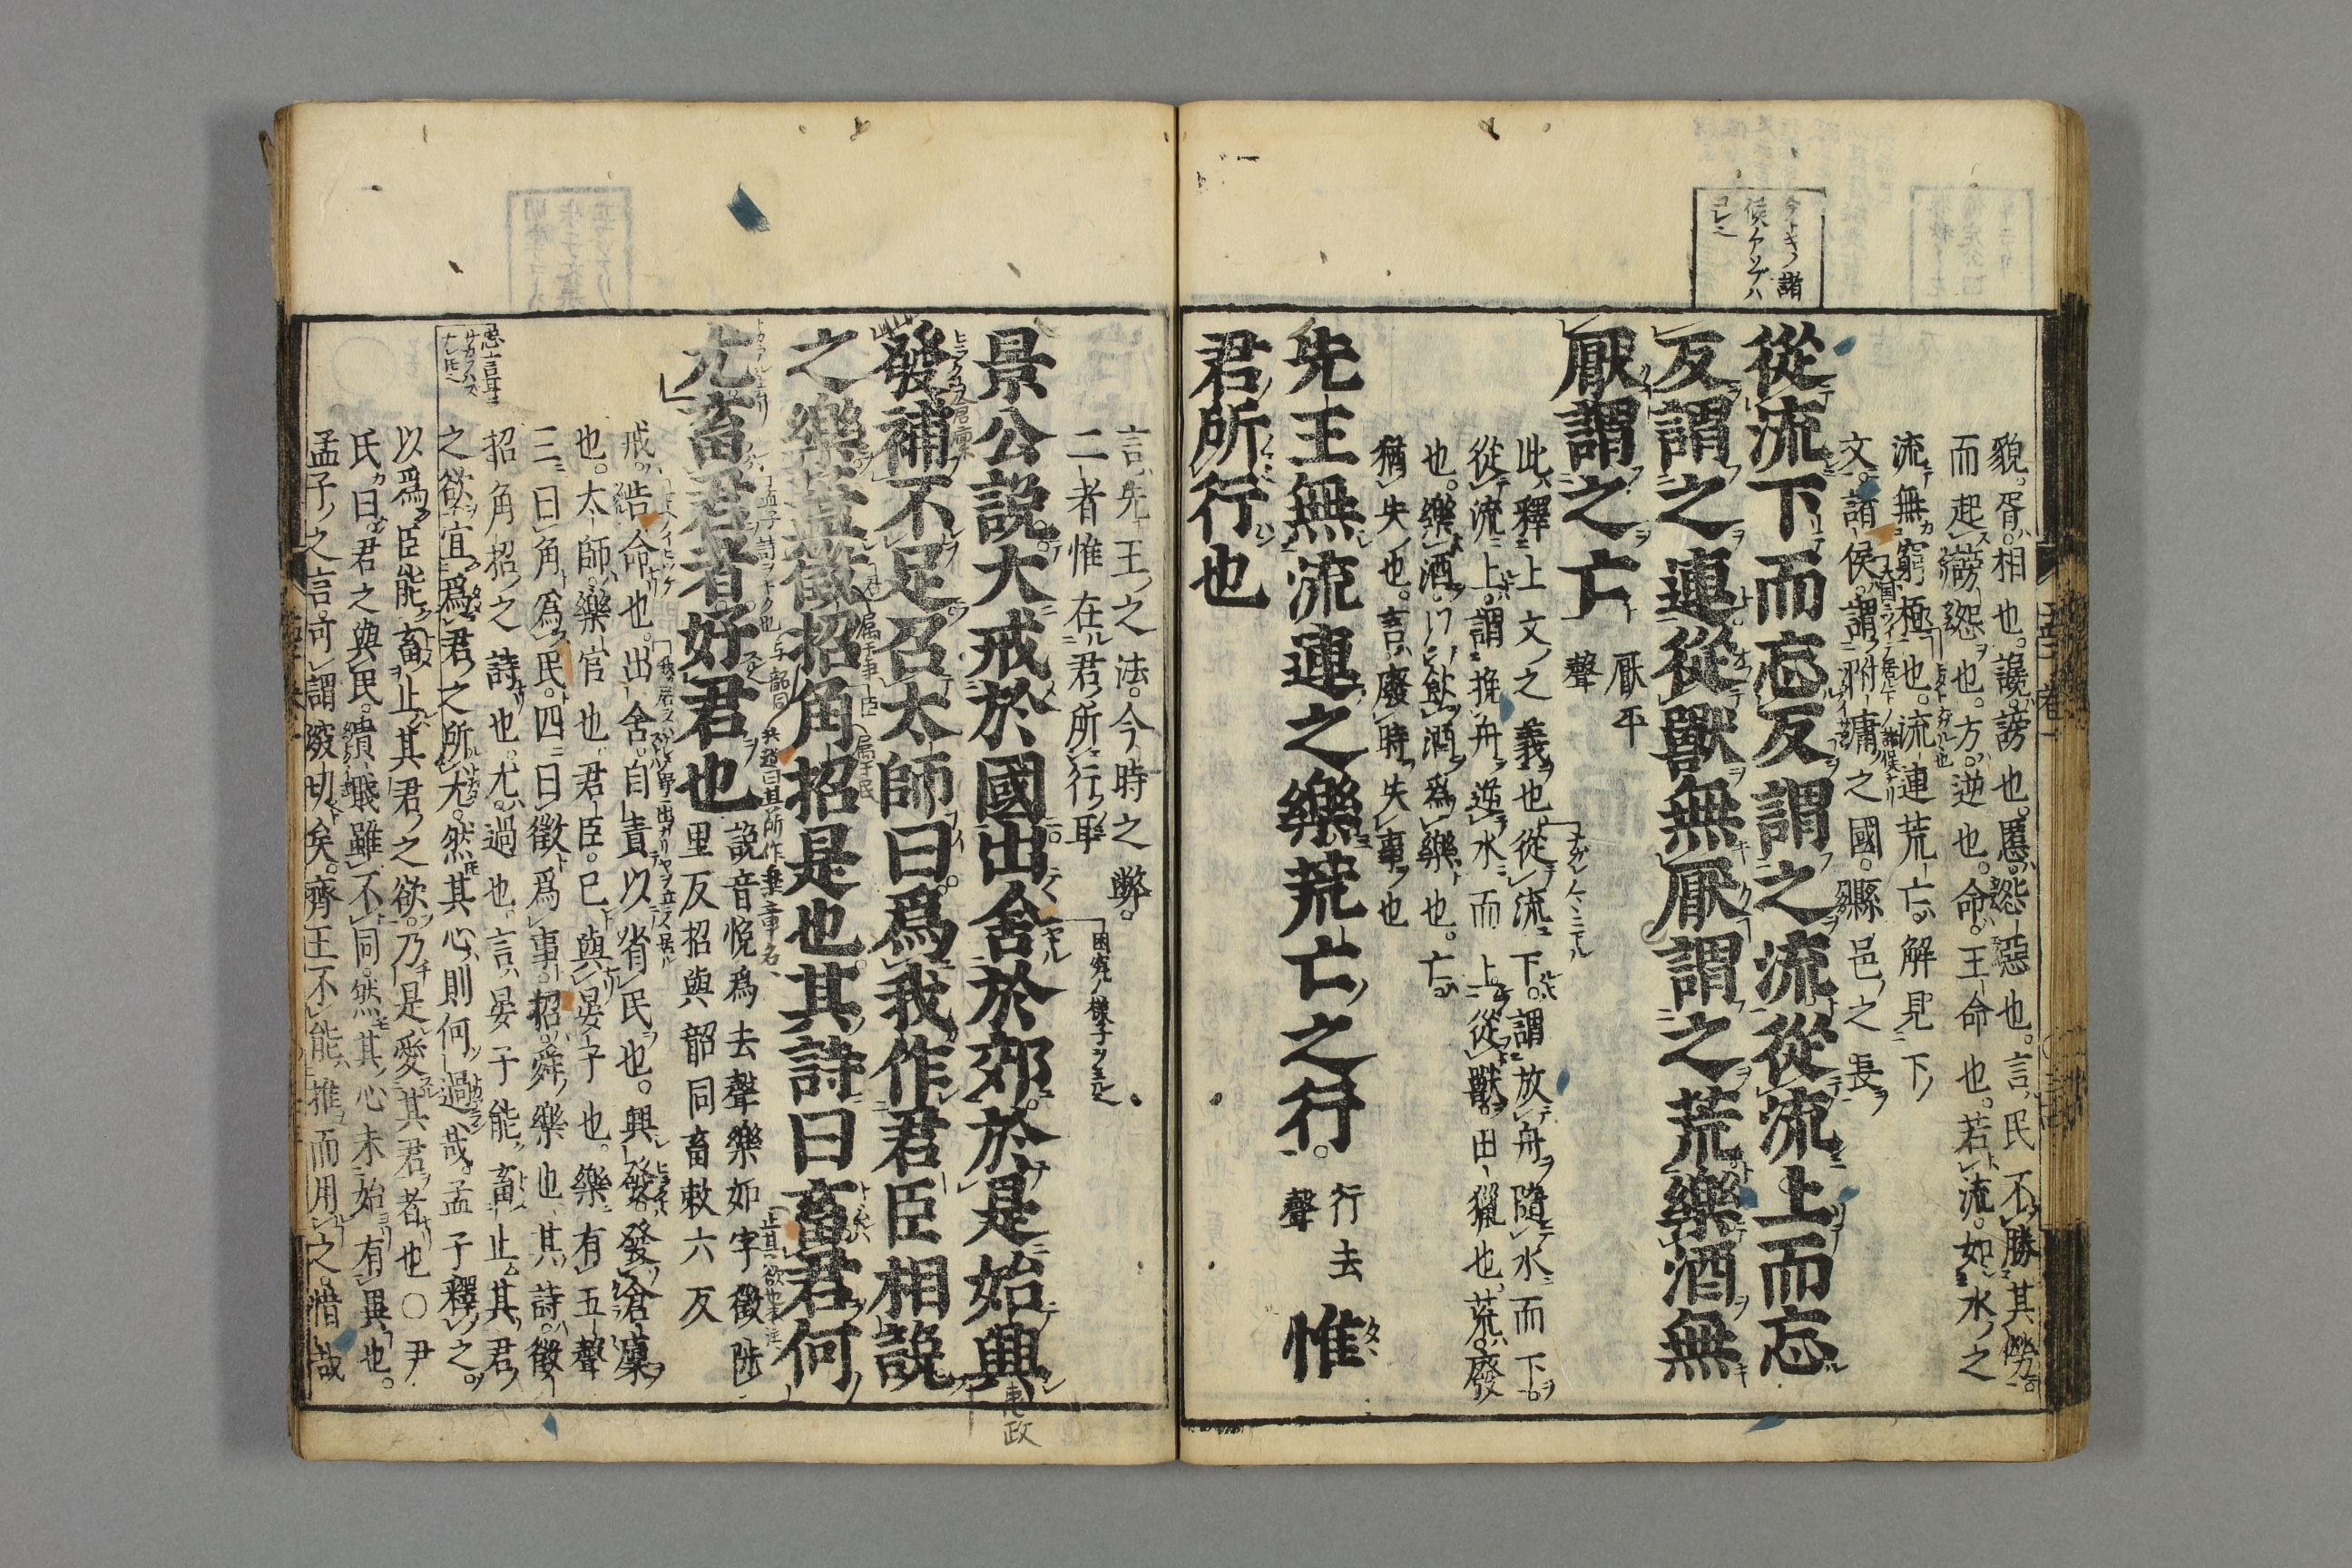 貌。胥。相也。讒。謗也。慝。怨惡也。言。民不勝其勞。
而起謗怨也。方。逆也。命。王命也。若流。如水之
流無窮極也。流連荒亡。解見下
文。諸侯。謂附庸之國。縣邑之長。
從流下而忘反謂之流從流上而忘
反謂之連從獸無厭謂之荒樂酒無
厭謂之亡
厭平
聲
此釋上文之義也。從流下。謂放舟隨水而下。
從流上。謂挽舟逆水而上。從獸。田獵也。荒。廢
也。樂酒。以飲酒爲樂也。亡。
猶失也。言廢時失事也
先王無流連之樂荒亡之行。
行去
聲
惟
君所行也
言先王之法。今時之弊。
二者惟在君所行耳
景公說大戒於國出舍於郊於是始興
發補不足召太師曰爲我作君臣相說
之樂蓋徵招角招是也其詩曰畜君何
尤畜君者好君也
說音悅爲去聲樂如字徵陟
里反招與韶同畜敕六反
戒。告命也。出舍。自責以省民也。興發。發倉廩
也。太師。樂官也。君臣。己與晏子也。樂有五聲
三曰角爲民。四曰徵爲事。招。舜樂也。其詩。徵
招角招之詩也。尤。過也。言晏子能畜止其君
之欲宜爲君之所尤。然其心則何過哉。孟子釋之。
以爲臣能畜止其君之欲。乃是愛其君者也○尹
氏曰。君之與民。貴賤雖不同。然其心未始有異也。
孟子之言。可謂深切矣。齊王不能推而用之。惜哉